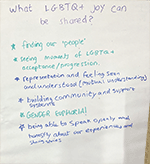 What LGBTQ+ joy can
be shared?
* finding our 'people'
* seeing moments of LGBTQ+
acceptance/progression.
* representation and feeling seen
and understood (mutual understanding)
* building community and support
systems
* GENDER EUPHORIA!
* being able to speak openly and
honestly about our experiences and